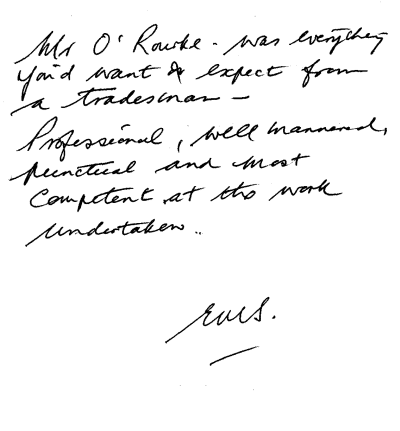 Mr O'Rourke - was everything
you'd want & expect from
a tradesman -
Professional, well mannered,
punctual and most
competent at the work
undertaken..